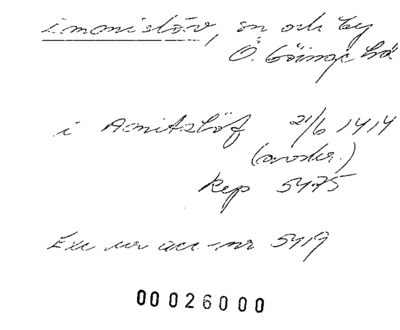 Emmislöv, sn och by
Ö. Göinge hd
i Amitzlöf 21/6 1414
(avskr.)
Rep 5475
Exc ur acc-nr 5419
00026000